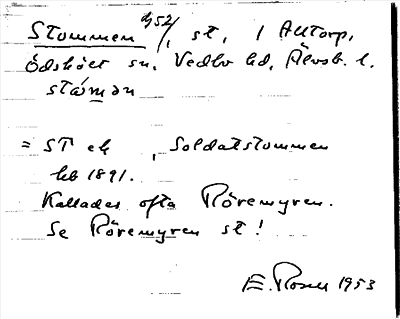 Stommen 4/52/1, st, / Alltorp,
Ödskölt sn, Vedbo hd, Älvsb. l.
stómən
= ST ek, Soldatstommen
hb 1891.
Kallades ofta Röremyren.
Se Röremyren st!
E. Rosell 1953